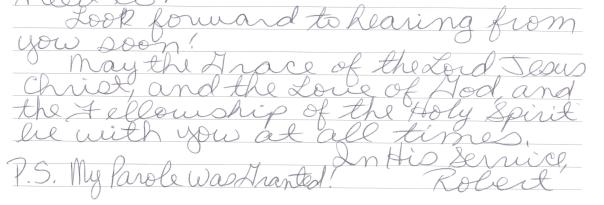 Look forward to hearing from
you soon!
May the Grace of the Lord Jesus
Christ, and the Love of God, and
the Fellowship of the Holy Spirit
be with you at all times.
In His Service,
P.S. My Parole Was Granted! Robert